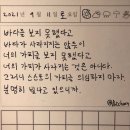 2021 9 11
바다를 보지 못했다고
바다가 사라지지는 않듯이
너의 가치를 보지 못했다고
너의 가치가 사라지는 것은 아니다.
그러니 스스로의 가치를 의심하지 마라.
분명히 빛나고 있으니까.